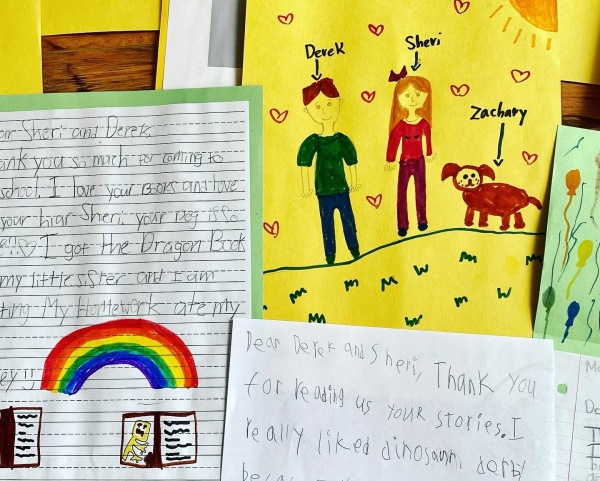 Derek
Sheri
Zachary
ar Sheri and Derek
ank you so much for coming to
school. I love your Books and love
your hiar Sheri, your Dog is so
e!! I got the Dragon Book
my little sister and I am
ting My Homework ate my
ey
Dear Derek and Sheri, Thank you
for reading us your stories. I
really liked dinosaur derby